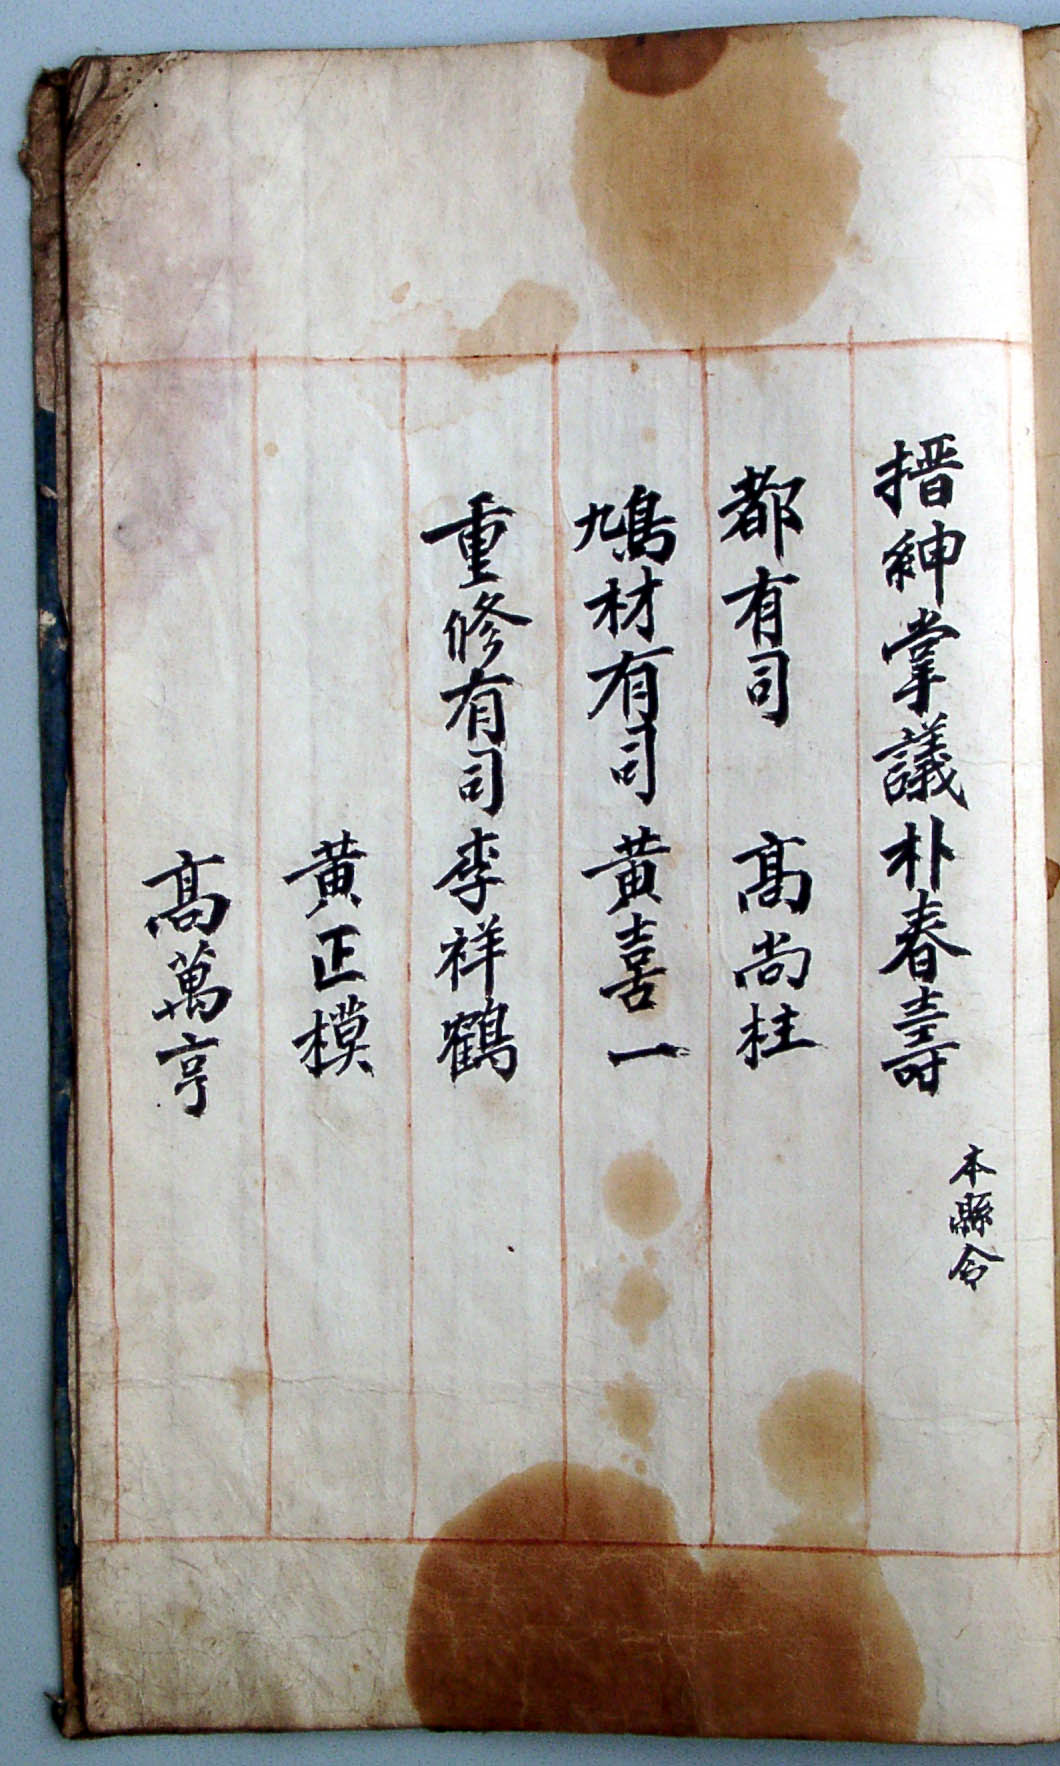 搢紳掌議朴春壽 本縣令
都有司 高尚柱
鳩材有司 黃喜一
重修有司 李祥鶴
黃正模
高萬亨